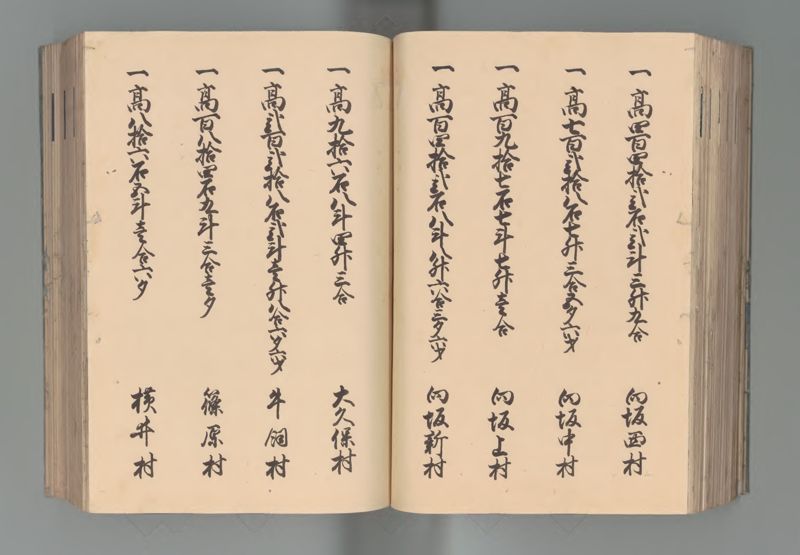 一高四百四拾弐石弐斗三升九合 向坂西村
一高七百弐拾八石七升三合五夕六才 向坂中村
一高百九拾七石七斗七升壱合 向坂上村
一高百四拾弐石八斗八升六合三夕六才 向坂新村
一高九拾六石八斗四升三合 大久保村
一高弐百弐拾八石弐斗壱升八合六夕六才 牛飼村
一高百八拾四石九斗三合壱夕 篠原村
一高八拾六石五斗壱合六夕 横井村